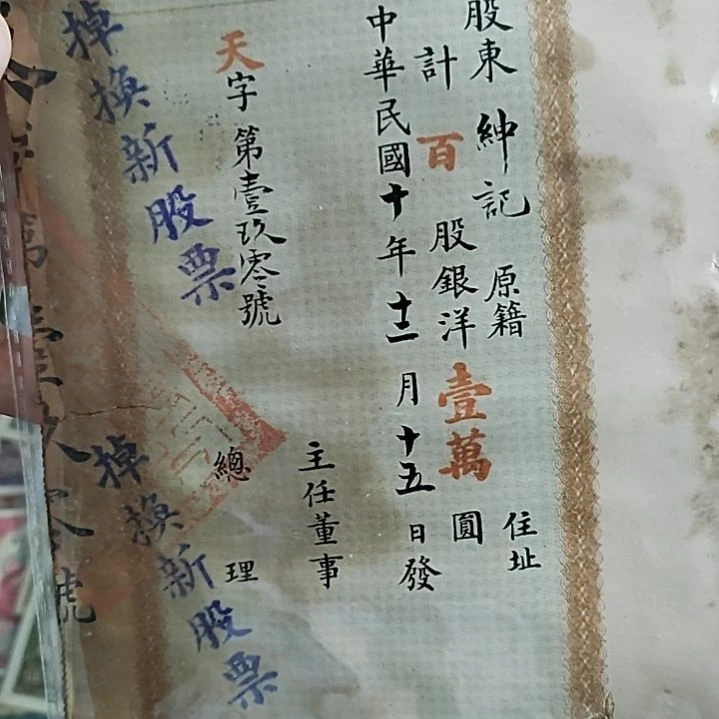 股東 紳記 原籍 住址
計百股銀洋壹萬圓
中華民國十年十二月十五日發
主任董事
總理
天字第壹玖零號
掉換新股票
掉換新股票